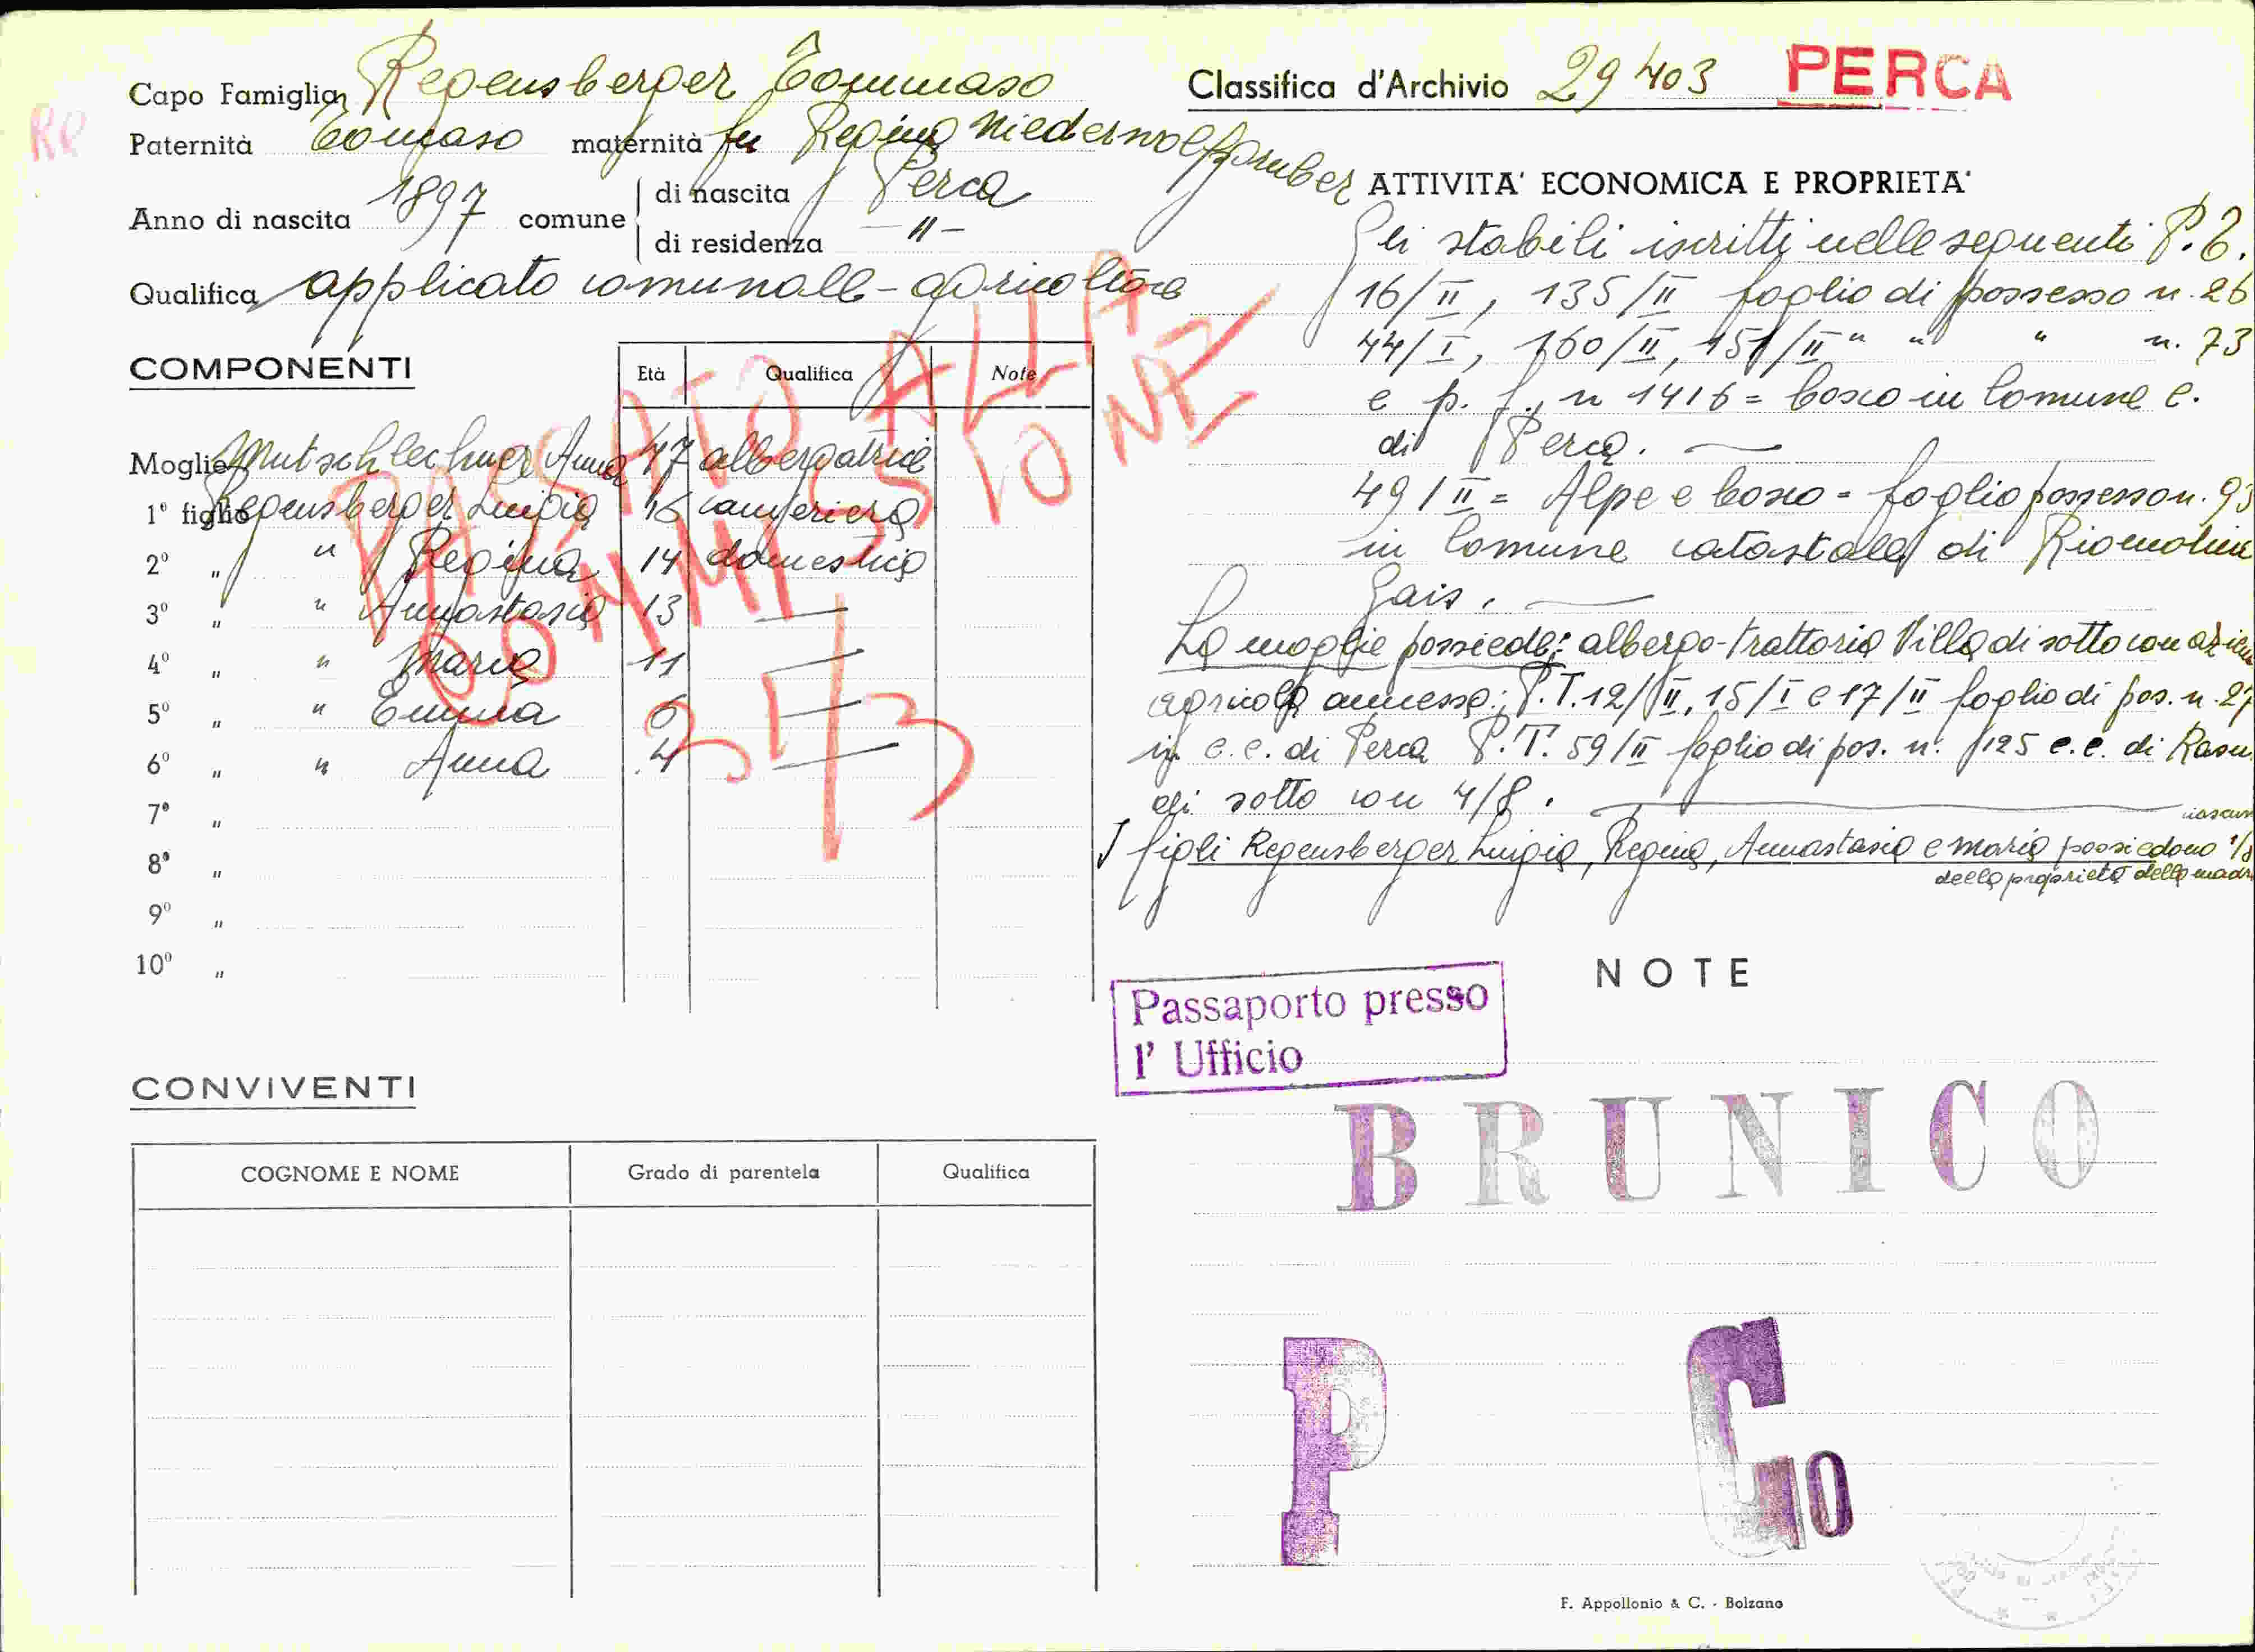 Capo Famiglia Regensberger Tommaso
Paternità Tommaso maternità fu Regina Niederwolfsgruber
Anno di nascita 1897 comune di nascita Perca
di residenza — " —
Qualifica applicato comunale - agricoltore
COMPONENTI Età Qualifica Note
Moglie Mutschlechner Anna 47 albergatrice
1° figlio Regensberger Luigia 16 cameriera
2° " " Regina 14 domestica
3° " " Annastasia 13 —
4° " " Maria 11 —
5° " " Emma 6 —
6° " " Anna 4 —
7° "
8° "
9° "
10° "
PASSATO ALLA
COMMISSIONE
CONVIVENTI
COGNOME E NOME Grado di parentela Qualifica
Classifica d'Archivio 29403 PERCA
ATTIVITA' ECONOMICA E PROPRIETA'
Gli stabili iscritti nelle seguenti P.T.
16/II, 135/II foglio di possesso n. 26
44/I, 160/II, 151/II " " " n. 73
e p. f. n 1416 = bosco in Comune c.
di Perca. —
49/II = Alpe e bosco = foglio possesso n. 93
in Comune catastale di Riomolino
Gais. —
La moglie possiede: albergo-trattoria Villa di sotto con
agricola annessa: P.T. 12/II, 15/I e 17/II foglio di pos. n. 27
in c.c. di Perca P.T. 59/II foglio di pos. n. 125 c.c. di Rasun
di sotto con 4/8. —
I figli Regensberger Luigia, Regina, Annastasia e Maria possiedono 1/8
della proprietà della madre
NOTE
Passaporto presso
l' Ufficio
BRUNICO
P Go
F. Appollonio & C. - Bolzano